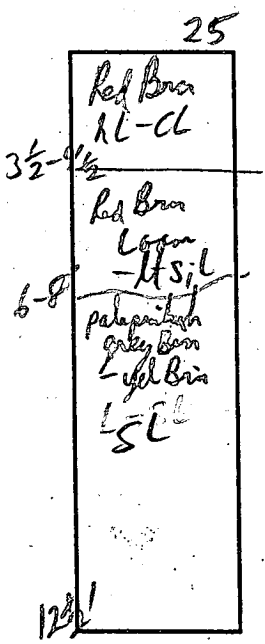 25
Red Brn
HL-CL
3½-4½
Red Brn
Loam
-Lt SiL
6-8'
pale
grey Brn
-yel Brn
L-SL
SL
12½'